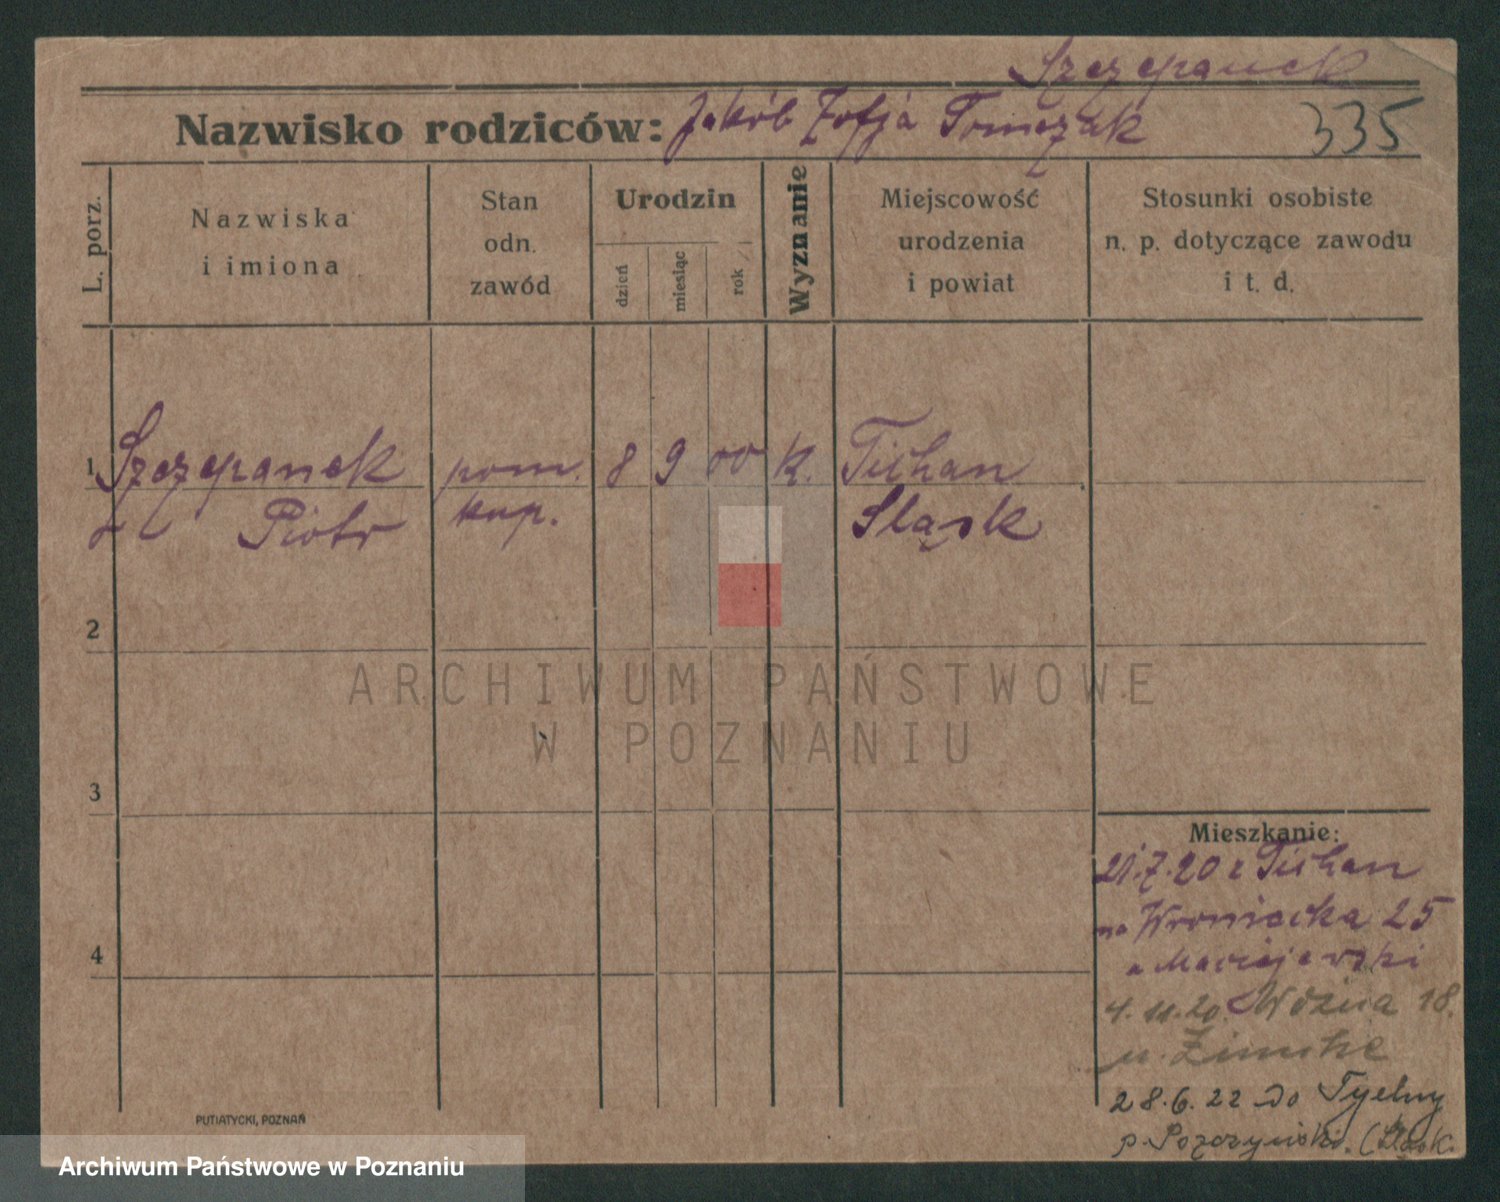 Szczepanek
Nazwisko rodziców: Jakób Zofja Tomczak
335
L. porz.
Nazwiska
i imiona
Stan
odn.
zawód
Urodzin
dzień
miesiąc
rok
Wyznanie
Miejscowość
urodzenia
i powiat
Stosunki osobiste
n. p. dotyczące zawodu
i t. d.
1 Szczepanek pom. 8 9 00 k. Tichan
Piotr kup. Sląsk
2
ARCHIWUM PAŃSTWOWE
W POZNANIU
3
Mieszkanie:
21.7.20 z Tichan
na Wroniecka 25
u Maciejewski
4
4.11.20. Woźna 18.
u.
28.6.22 do
p. (Sląsk.
PUTIATYCKI, POZNAŃ
Archiwum Państwowe w Poznaniu